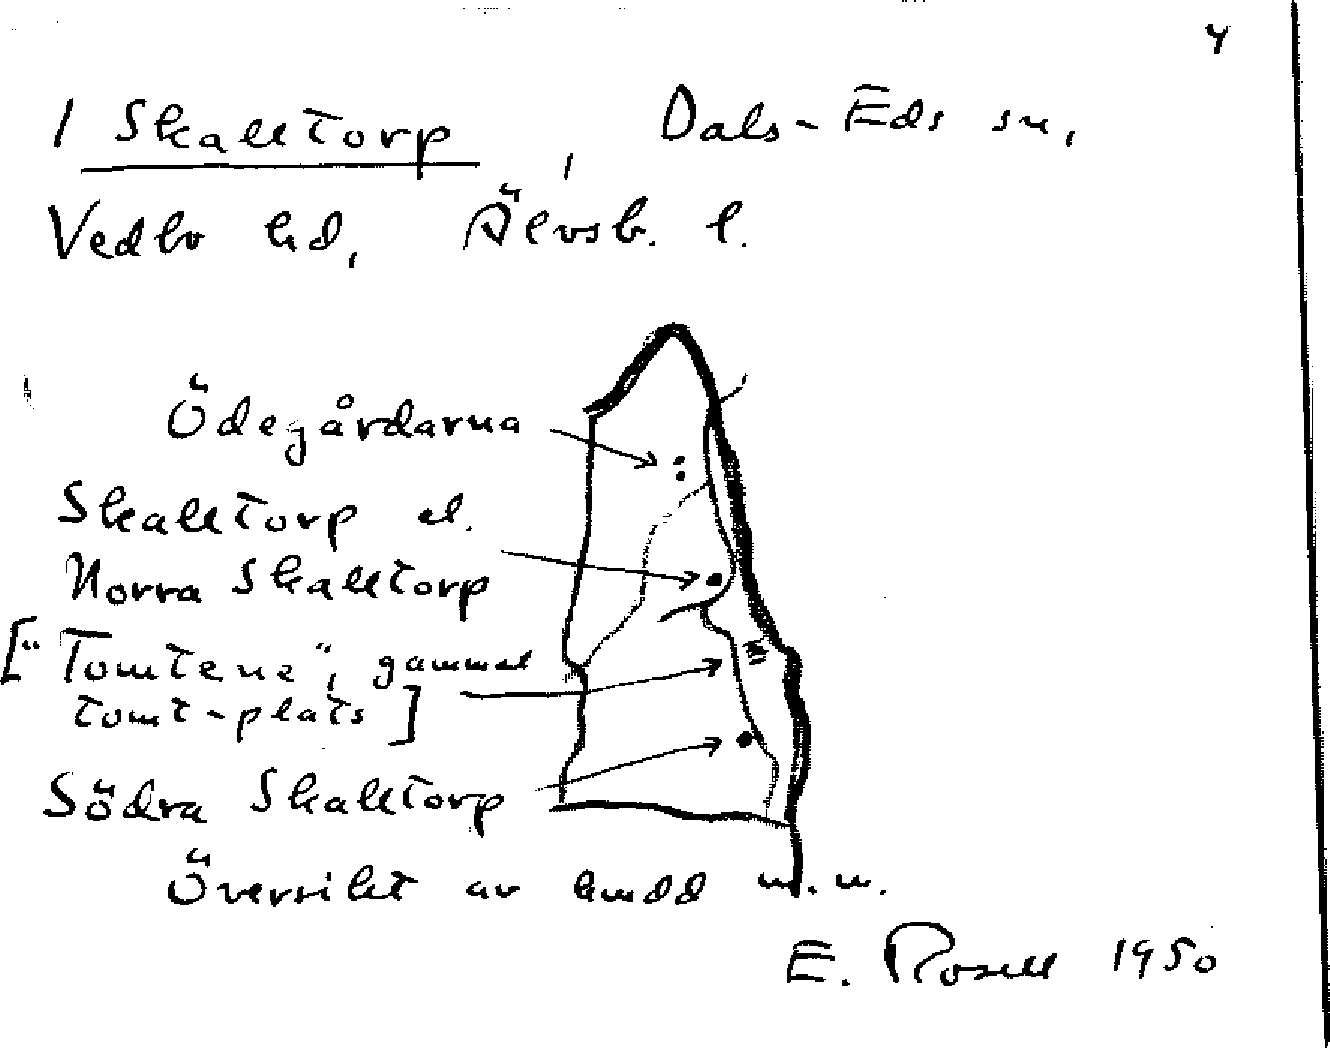 4
1 Skalltorp, Dals-Eds sn,
Vedbo hd, Älvsb. l.
Ödegårdarna
Skalltorp el.
Norra Skalltorp
["Tomtene", gammal
tomt-plats]
Södra Skalltorp
Översikt av hmdd m.m.
E. Rosell 1950